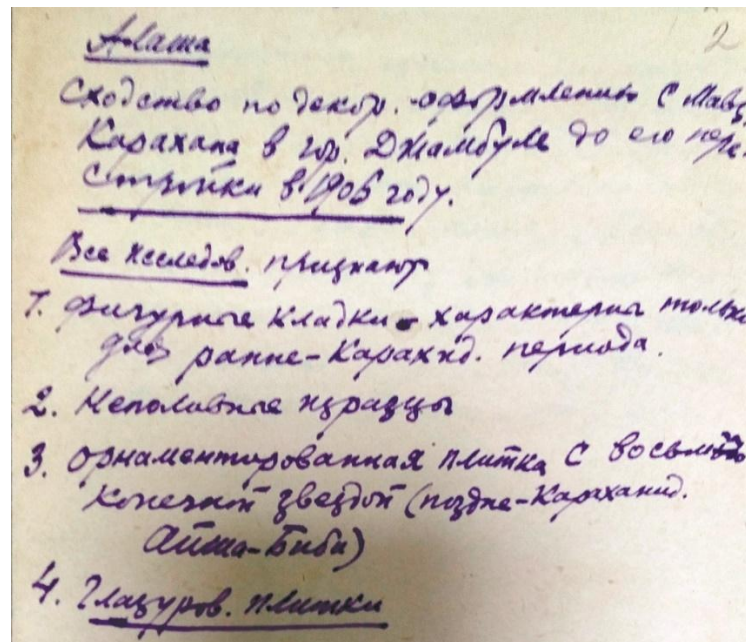 2
Алаша
Сходство по декор. оформлению с Мавз
Карахана в гор. Джамбуле до его пере-
стройки в 1906 году.
Все исследов. признают
1. фигурные кладки - характерны только
для ранне-Карахид. периода.
2. Неполивные изразцы
3. орнаментированная плитка с восьми
конечной звездой (поздне-Караханид.
Айша-Биби)
4. Глазуров. плитки